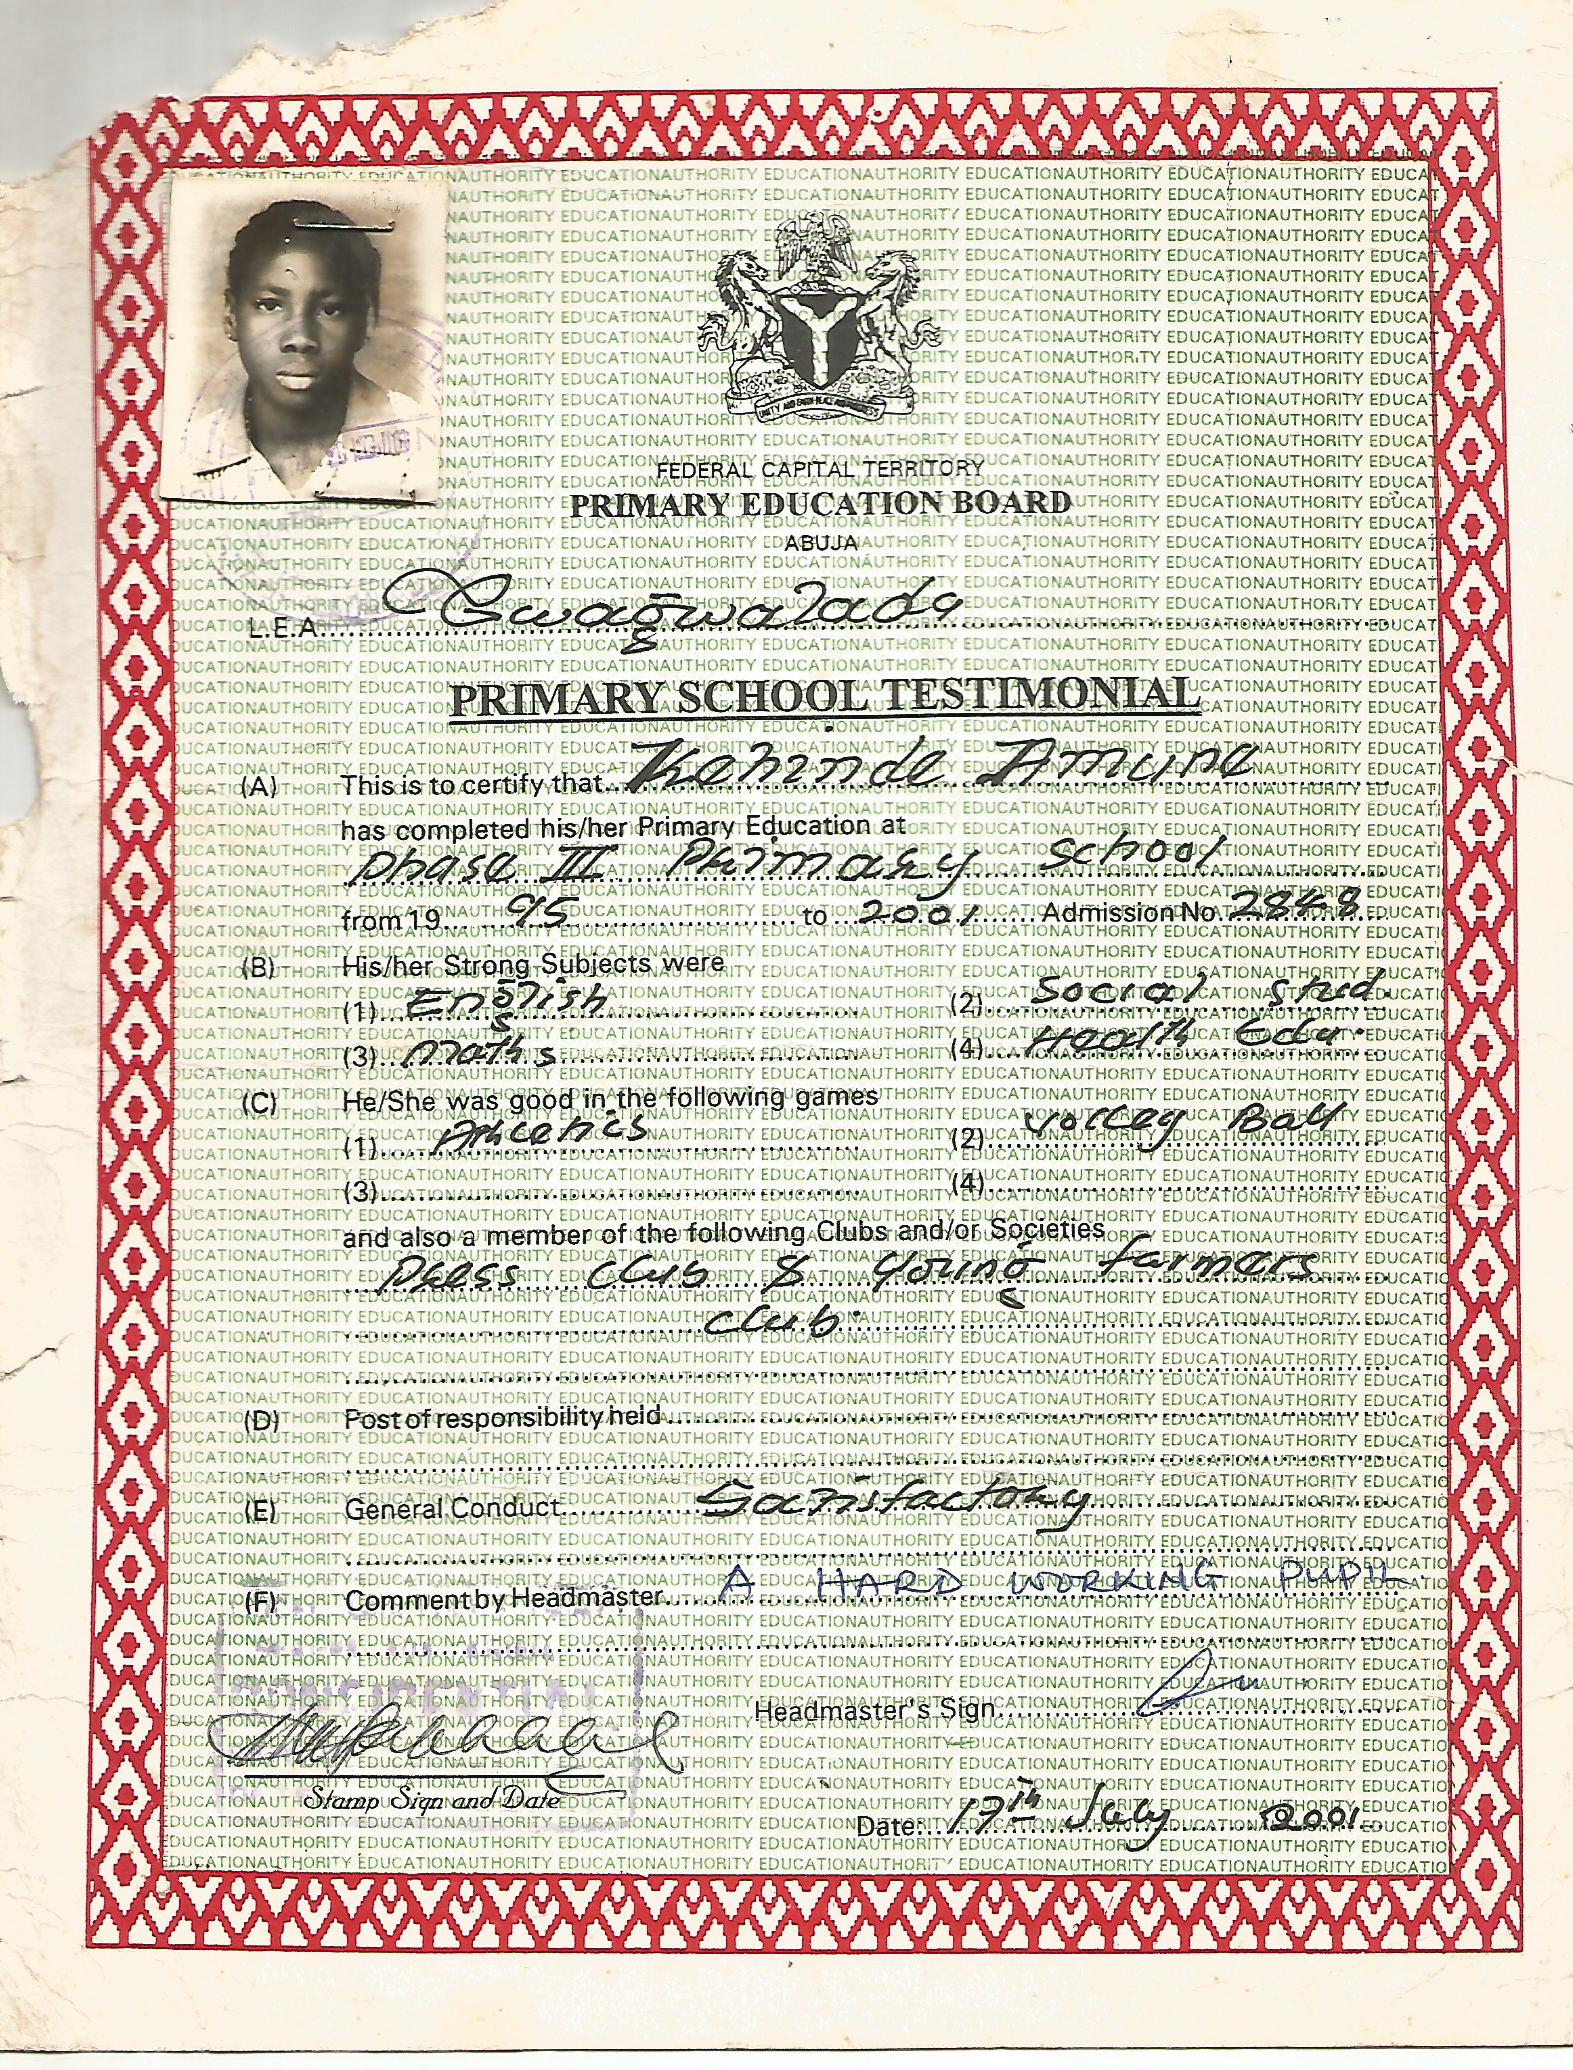 UNITY AND FAITH, PEACE AND PROGRESS
FEDERAL CAPITAL TERRITORY
PRIMARY EDUCATION BOARD
ABUJA
L.E.A. Gwagwalada
PRIMARY SCHOOL TESTIMONIAL
(A) This is to certify that Kehinde Amune
has completed his/her Primary Education at
Phase III Primary School
from 19 95 to 2001 Admission No 2848
(B) His/her Strong Subjects were
(1) English (2) Social Stud.
(3) Maths (4) Health Edu.
(C) He/She was good in the following games
(1) Athletics (2) Volley Ball
(3) (4)
and also a member of the following Clubs and/or Societies
Press Club & Young farmers
club.
(D) Post of responsibility held
(E) General Conduct Satisfactory
(F) Comment by Headmaster A HARD WORKING PUPIL
CONFIDENTIAL
Headmaster's Sign
Stamp Sign and Date
Date: 17th July 2001